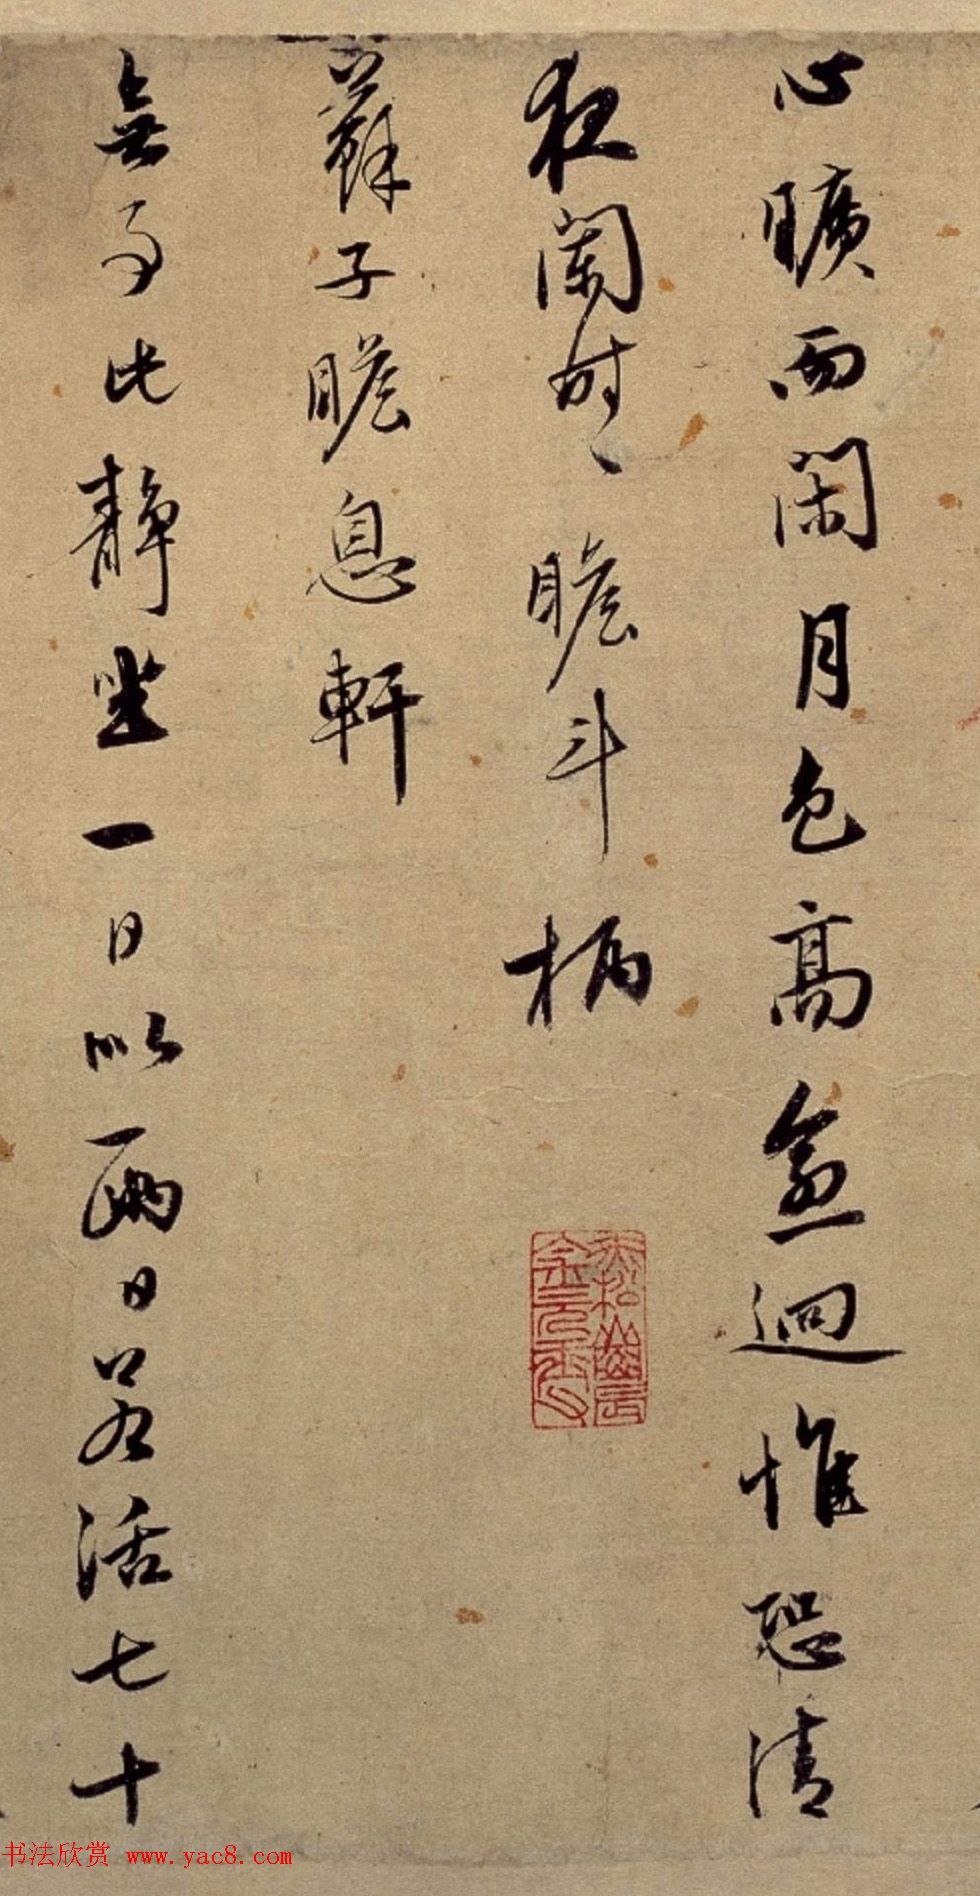 心曠而閑月色高愈迥惟恐清
夜闌時時瞻斗柄
蘇子瞻息軒
無事此靜坐一日以兩日若活七十
书法欣赏 www.yac8.com